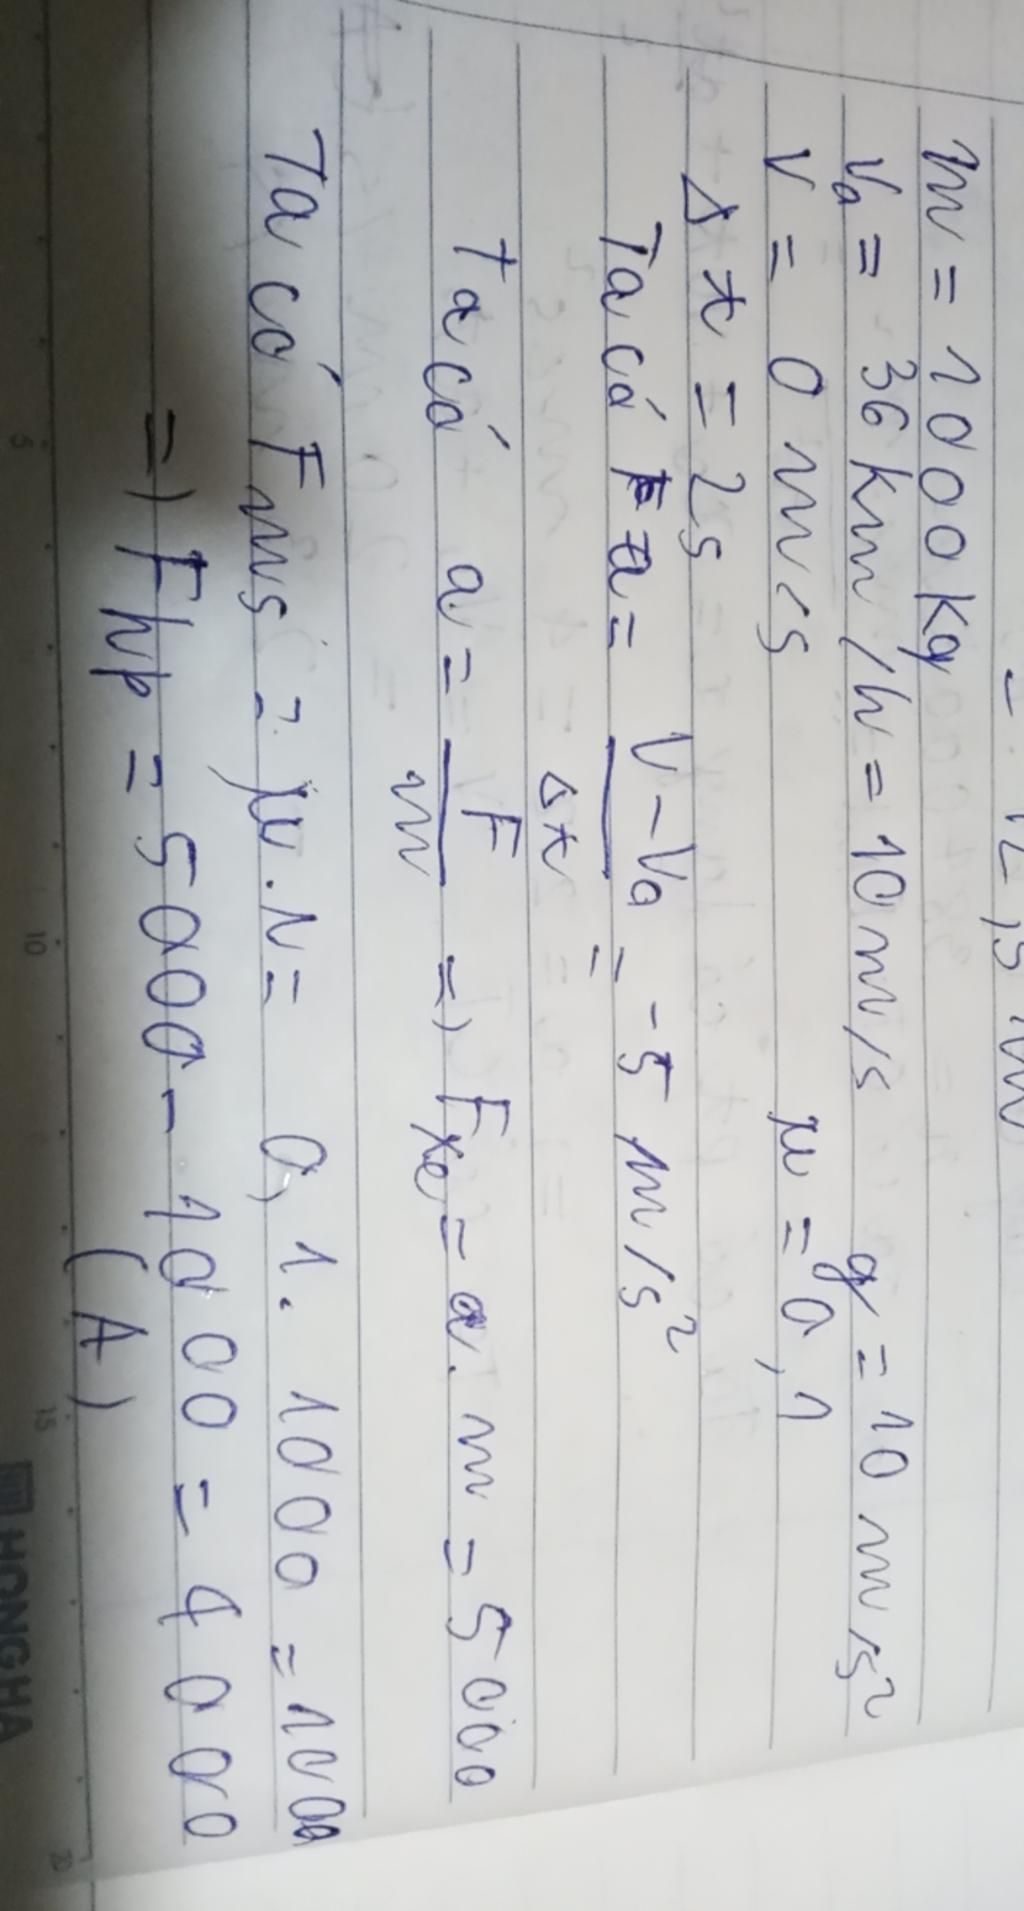 m = 1000kg
V₀ = 36km/h = 10m/s g = 10 m/s²
V = 0 m/s μ = 0,1
Δt = 2s
Ta có a = V - V₀ / Δt = -5 m/s²
Ta có a = F / m => Fxe = a.m = 5000
Ta có Fms = μ.N = 0,1.1000 = 1000
=) Fhp = 5000 - 1000 = 4000
(A)
5 10 15 20
HONG HA